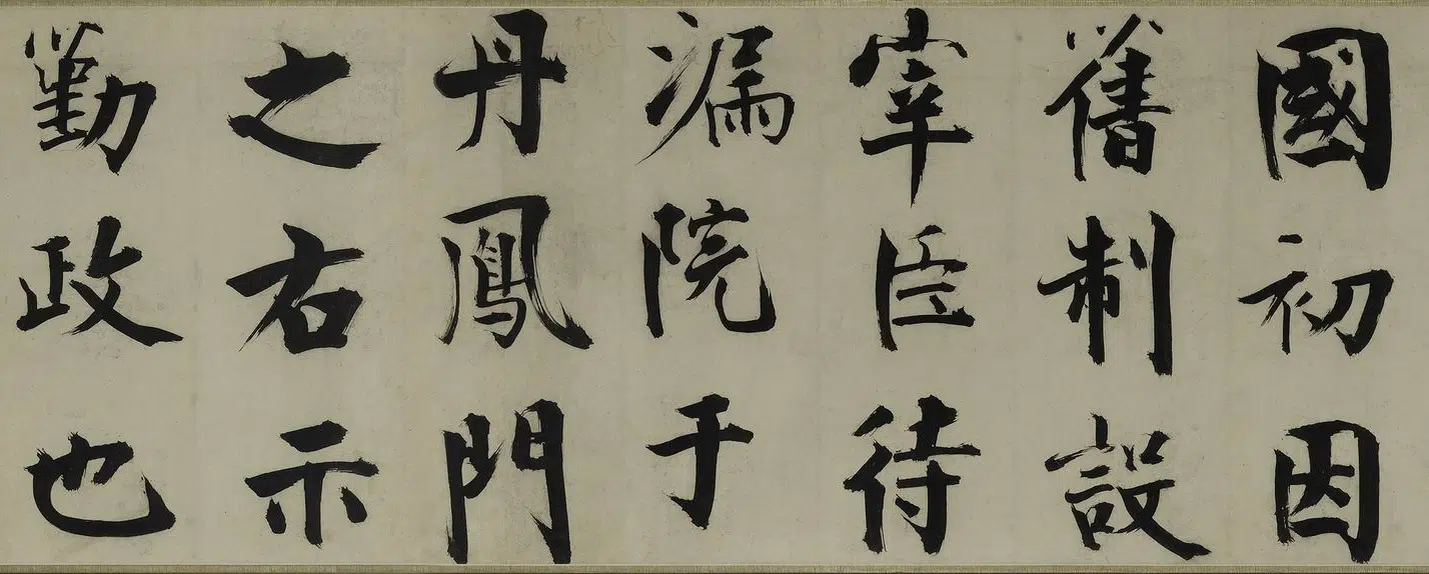 國初因
舊制設
宰臣待
漏院于
丹鳳門
之右示
勤政也